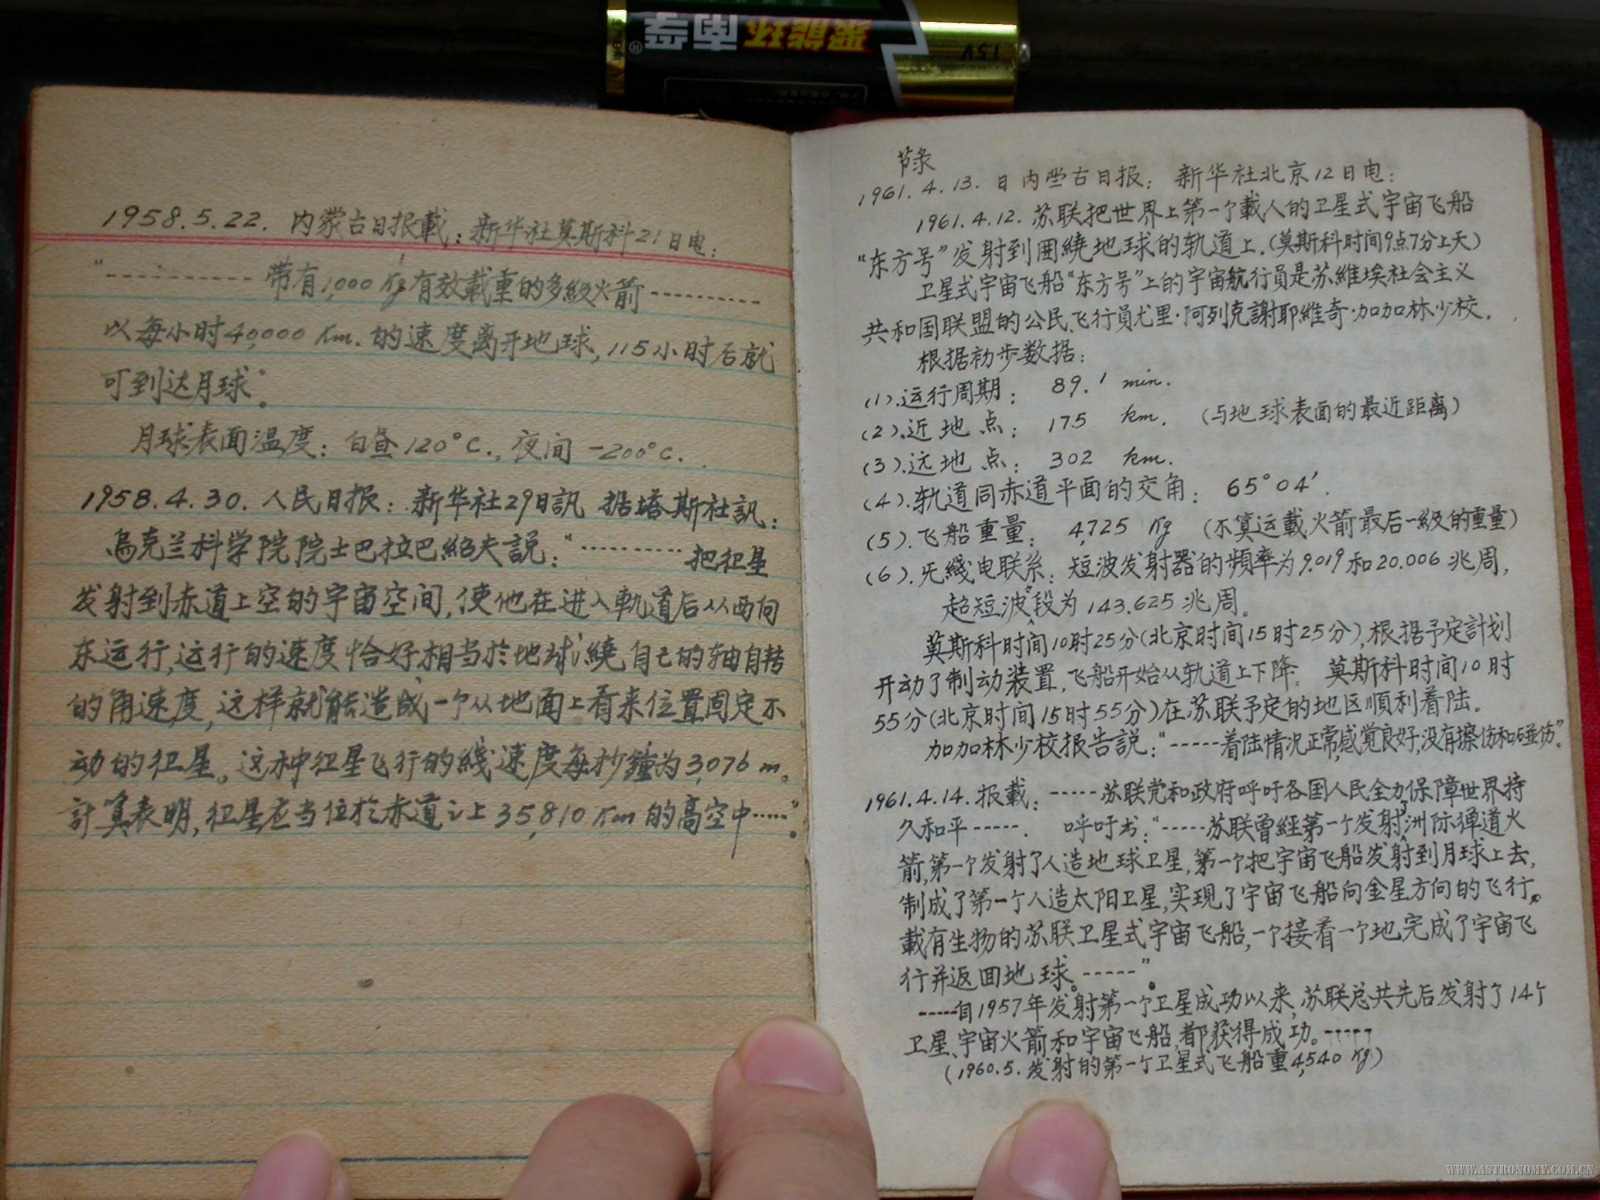 南孚
聚能环
1.5V
1958.5.22. 内蒙古日报載:新华社莫斯科21日电:
"----------- 带有1,000 Kg有效載重的多級火箭-----------
以每小时40,000 Km.的速度离开地球,115小时后就
可到达月球"。
月球表面温度:白昼120°C.,夜间-200°C.
1958.4.30.人民日报:新华社29日訊 据塔斯社訊:
烏克兰科学院院士巴拉巴絽夫説:"---------- 把衛星
发射到赤道上空的宇宙空间,使他在进入軌道后从西向
东运行,运行的速度恰好相当於地球繞自己的轴自转
的角速度,这样就能造成一个从地面上看来位置固定不
动的衛星。这种衛星飞行的綫速度每秒鐘为3,076 m。
計算表明,衛星应当位於赤道之上35,810 Km的高空中-----"。
节录
1961.4.13.日内蒙古日报: 新华社北京12日电:
1961.4.12.苏联把世界上第一个載人的卫星式宇宙飞船
"东方号"发射到囲繞地球的轨道上.(莫斯科时间9点7分上天)
卫星式宇宙飞船"东方号"上的宇宙航行員是苏維埃社会主义
共和国联盟的公民飞行員尤里·阿列克謝耶維奇·加加林少校.
根据初步数据:
(1).运行周期: 89.1 min.
(2).近地点: 175 km. (与地球表面的最近距离)
(3).远地点: 302 km.
(4).轨道同赤道平面的交角: 65°04'.
(5).飞船重量: 4,725 Kg (不算运載火箭最后一級的重量)
(6).无綫电联系:短波发射器的頻率为9.019和20.006兆周,
超短波段为143.625兆周。
莫斯科时间10时25分(北京时间15时25分),根据予定計划
开动了制动装置,飞船开始从轨道上下降. 莫斯科时间10时
55分(北京时间15时55分)在苏联予定的地区順利着陆.
加加林少校报告説:"-----着陆情况正常,感觉良好,没有擦伤和碰伤".
1961.4.14.报載:-----苏联党和政府呼吁各国人民全力保障世界持
久和平-----. 呼吁书:"-----苏联曾經第一个发射洲际弹道火
箭,第一个发射了人造地球卫星,第一个把宇宙飞船发射到月球上去,
制成了第一个人造太阳卫星,实现了宇宙飞船向金星方向的飞行。
載有生物的苏联卫星式宇宙飞船,一个接着一个地完成了宇宙飞
行并返回地球。-----"。
-----自1957年发射第一个卫星成功以来,苏联总共先后发射了14个
卫星、宇宙火箭和宇宙飞船,都获得成功。-----
(1960.5.发射的第一个卫星式飞船重4,540 Kg)
WWW.ASTRONOMY.COM.CN